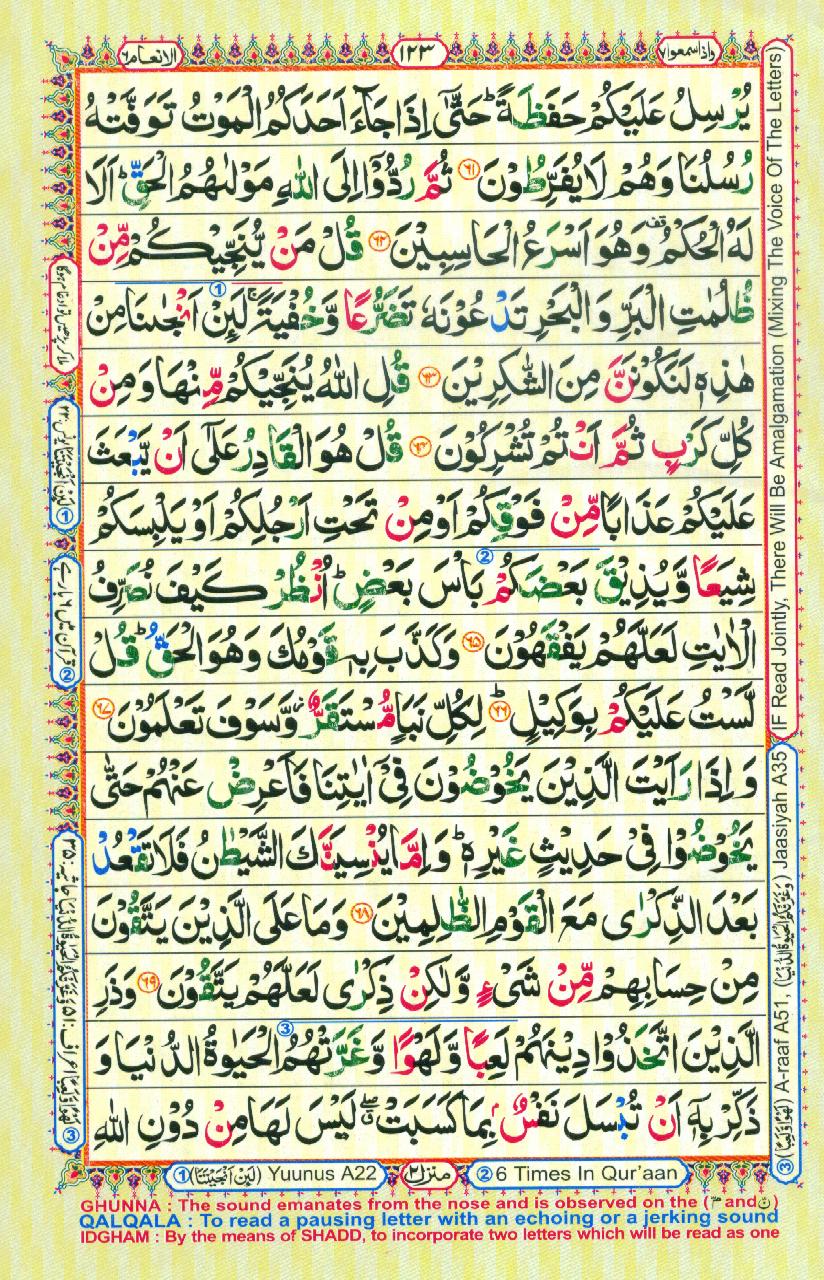 الانعام ٦
١٢٣
واذا سمعوا ٧
يُرْسِلُ عَلَيْكُمْ حَفَظَةً ؕ حَتّٰۤى اِذَا جَآءَ اَحَدَكُمُ الْمَوْتُ تَوَفَّتْهُ
رُسُلُنَا وَهُمْ لَا يُفَرِّطُوْنَ ﴿٦١﴾ ثُمَّ رُدُّوْۤا اِلَى اللّٰهِ مَوْلٰىهُمُ الْحَقِّ ؕ اَلَا
لَهُ الْحُكْمُ قف وَهُوَ اَسْرَعُ الْحَاسِبِيْنَ ﴿٦٢﴾ قُلْ مَنْ يُّنَجِّيْكُمْ مِّنْ
ظُلُمٰتِ الْبَرِّ وَالْبَحْرِ تَدْعُوْنَهٗ تَضَرُّعًا وَّخُفْيَةً ۚ لَئِنْ اَنْجٰىنَا مِنْ
هٰذِهٖ لَنَكُوْنَنَّ مِنَ الشّٰكِرِيْنَ ﴿٦٣﴾ قُلِ اللّٰهُ يُنَجِّيْكُمْ مِّنْهَا وَمِنْ
كُلِّ كَرْبٍ ثُمَّ اَنْتُمْ تُشْرِكُوْنَ ﴿٦٤﴾ قُلْ هُوَ الْقَادِرُ عَلٰۤى اَنْ يَّبْعَثَ
عَلَيْكُمْ عَذَابًا مِّنْ فَوْقِكُمْ اَوْ مِنْ تَحْتِ اَرْجُلِكُمْ اَوْ يَلْبِسَكُمْ
شِيَعًا وَّيُذِيْقَ بَعْضَكُمْ بَاْسَ بَعْضٍ ؕ اُنْظُرْ كَيْفَ نُصَرِّفُ
الْاٰيٰتِ لَعَلَّهُمْ يَفْقَهُوْنَ ﴿٦٥﴾ وَكَذَّبَ بِهٖ قَوْمُكَ وَهُوَ الْحَقُّ ؕ قُلْ
لَّسْتُ عَلَيْكُمْ بِوَكِيْلٍ ؕ ﴿٦٦﴾ لِكُلِّ نَبَاٍ مُّسْتَقَرٌّ ؗ وَّسَوْفَ تَعْلَمُوْنَ ﴿٦٧﴾
وَاِذَا رَاَيْتَ الَّذِيْنَ يَخُوْضُوْنَ فِيْۤ اٰيٰتِنَا فَاَعْرِضْ عَنْهُمْ حَتّٰى
يَخُوْضُوْا فِيْ حَدِيْثٍ غَيْرِهٖ ؕ وَاِمَّا يُنْسِيَنَّكَ الشَّيْطٰنُ فَلَا تَقْعُدْ
بَعْدَ الذِّكْرٰى مَعَ الْقَوْمِ الظّٰلِمِيْنَ ﴿٦٨﴾ وَمَا عَلَى الَّذِيْنَ يَتَّقُوْنَ
مِنْ حِسَابِهِمْ مِّنْ شَيْءٍ وَّلٰكِنْ ذِكْرٰى لَعَلَّهُمْ يَتَّقُوْنَ ﴿٦٩﴾ وَذَرِ
الَّذِيْنَ اتَّخَذُوْا دِيْنَهُمْ لَعِبًا وَّلَهْوًا وَّغَرَّتْهُمُ الْحَيٰوةُ الدُّنْيَا وَ
ذَكِّرْ بِهٖۤ اَنْ تُبْسَلَ نَفْسٌۢ بِمَا كَسَبَتْ ۖ ق لَيْسَ لَهَا مِنْ دُوْنِ اللّٰهِ
(IF Read Jointly, There Will Be Amalgamation (Mixing The Voice Of The Letters)
③ (لَهْوًا وَّلَعِبًا) A-raaf A51, (وَغَرَّتْكُمُ الْحَيٰوةُ الدُّنْيَا) Jaasiyah A35
① لَئِنْ اَنْجَيْتَنَا یونس: ۲۲
② قرآن میں ۶ بار ہے
③ لَهْوًا وَّلَعِبًا اعراف: ۵۱، وَغَرَّتْكُمُ الْحَيٰوةُ الدُّنْيَا جاثیہ: ۳۵
① (لَئِنْ اَنْجَيْتَنَا) Yuunus A22
منزل ٢
② 6 Times In Qur'aan
GHUNNA : The sound emanates from the nose and is observed on the (مّ and نّ)
QALQALA : To read a pausing letter with an echoing or a jerking sound
IDGHAM : By the means of SHADD, to incorporate two letters which will be read as one